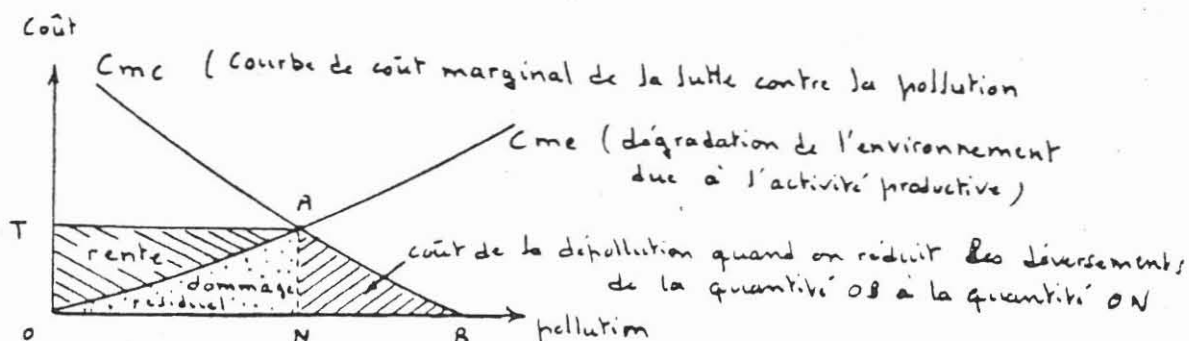 Coût
Cmc (Courbe de coût marginal de la lutte contre la pollution
Cme (dégradation de l'environnement
due à l'activité productive)
A
T
rente
coût de la dépollution quand on réduit les déversements
de la quantité OB à la quantité ON
dommage
résiduel
O
N
B
pollution